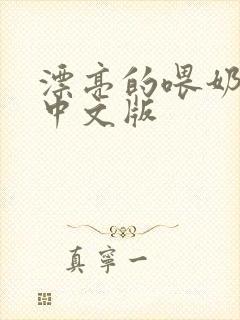 漂亮的喂奶
中文版
真宁一